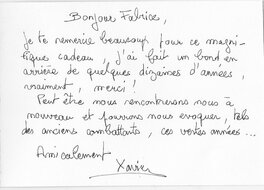 Bonjour Fabrice,
je te remercie beaucoup pour ce magni-
fique cadeau, j'ai fait un bond en
arrière de quelques dizaines d'années,
vraiment, merci !
Peut être nous rencontrerons nous à
nouveau et pourrons nous évoquer, tels
des anciens combattants, ces vertes années...
Amicalement
Xavier